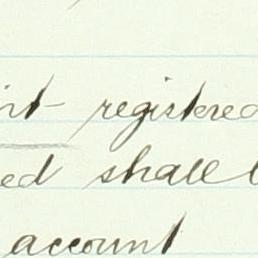 registered
ed shall
account